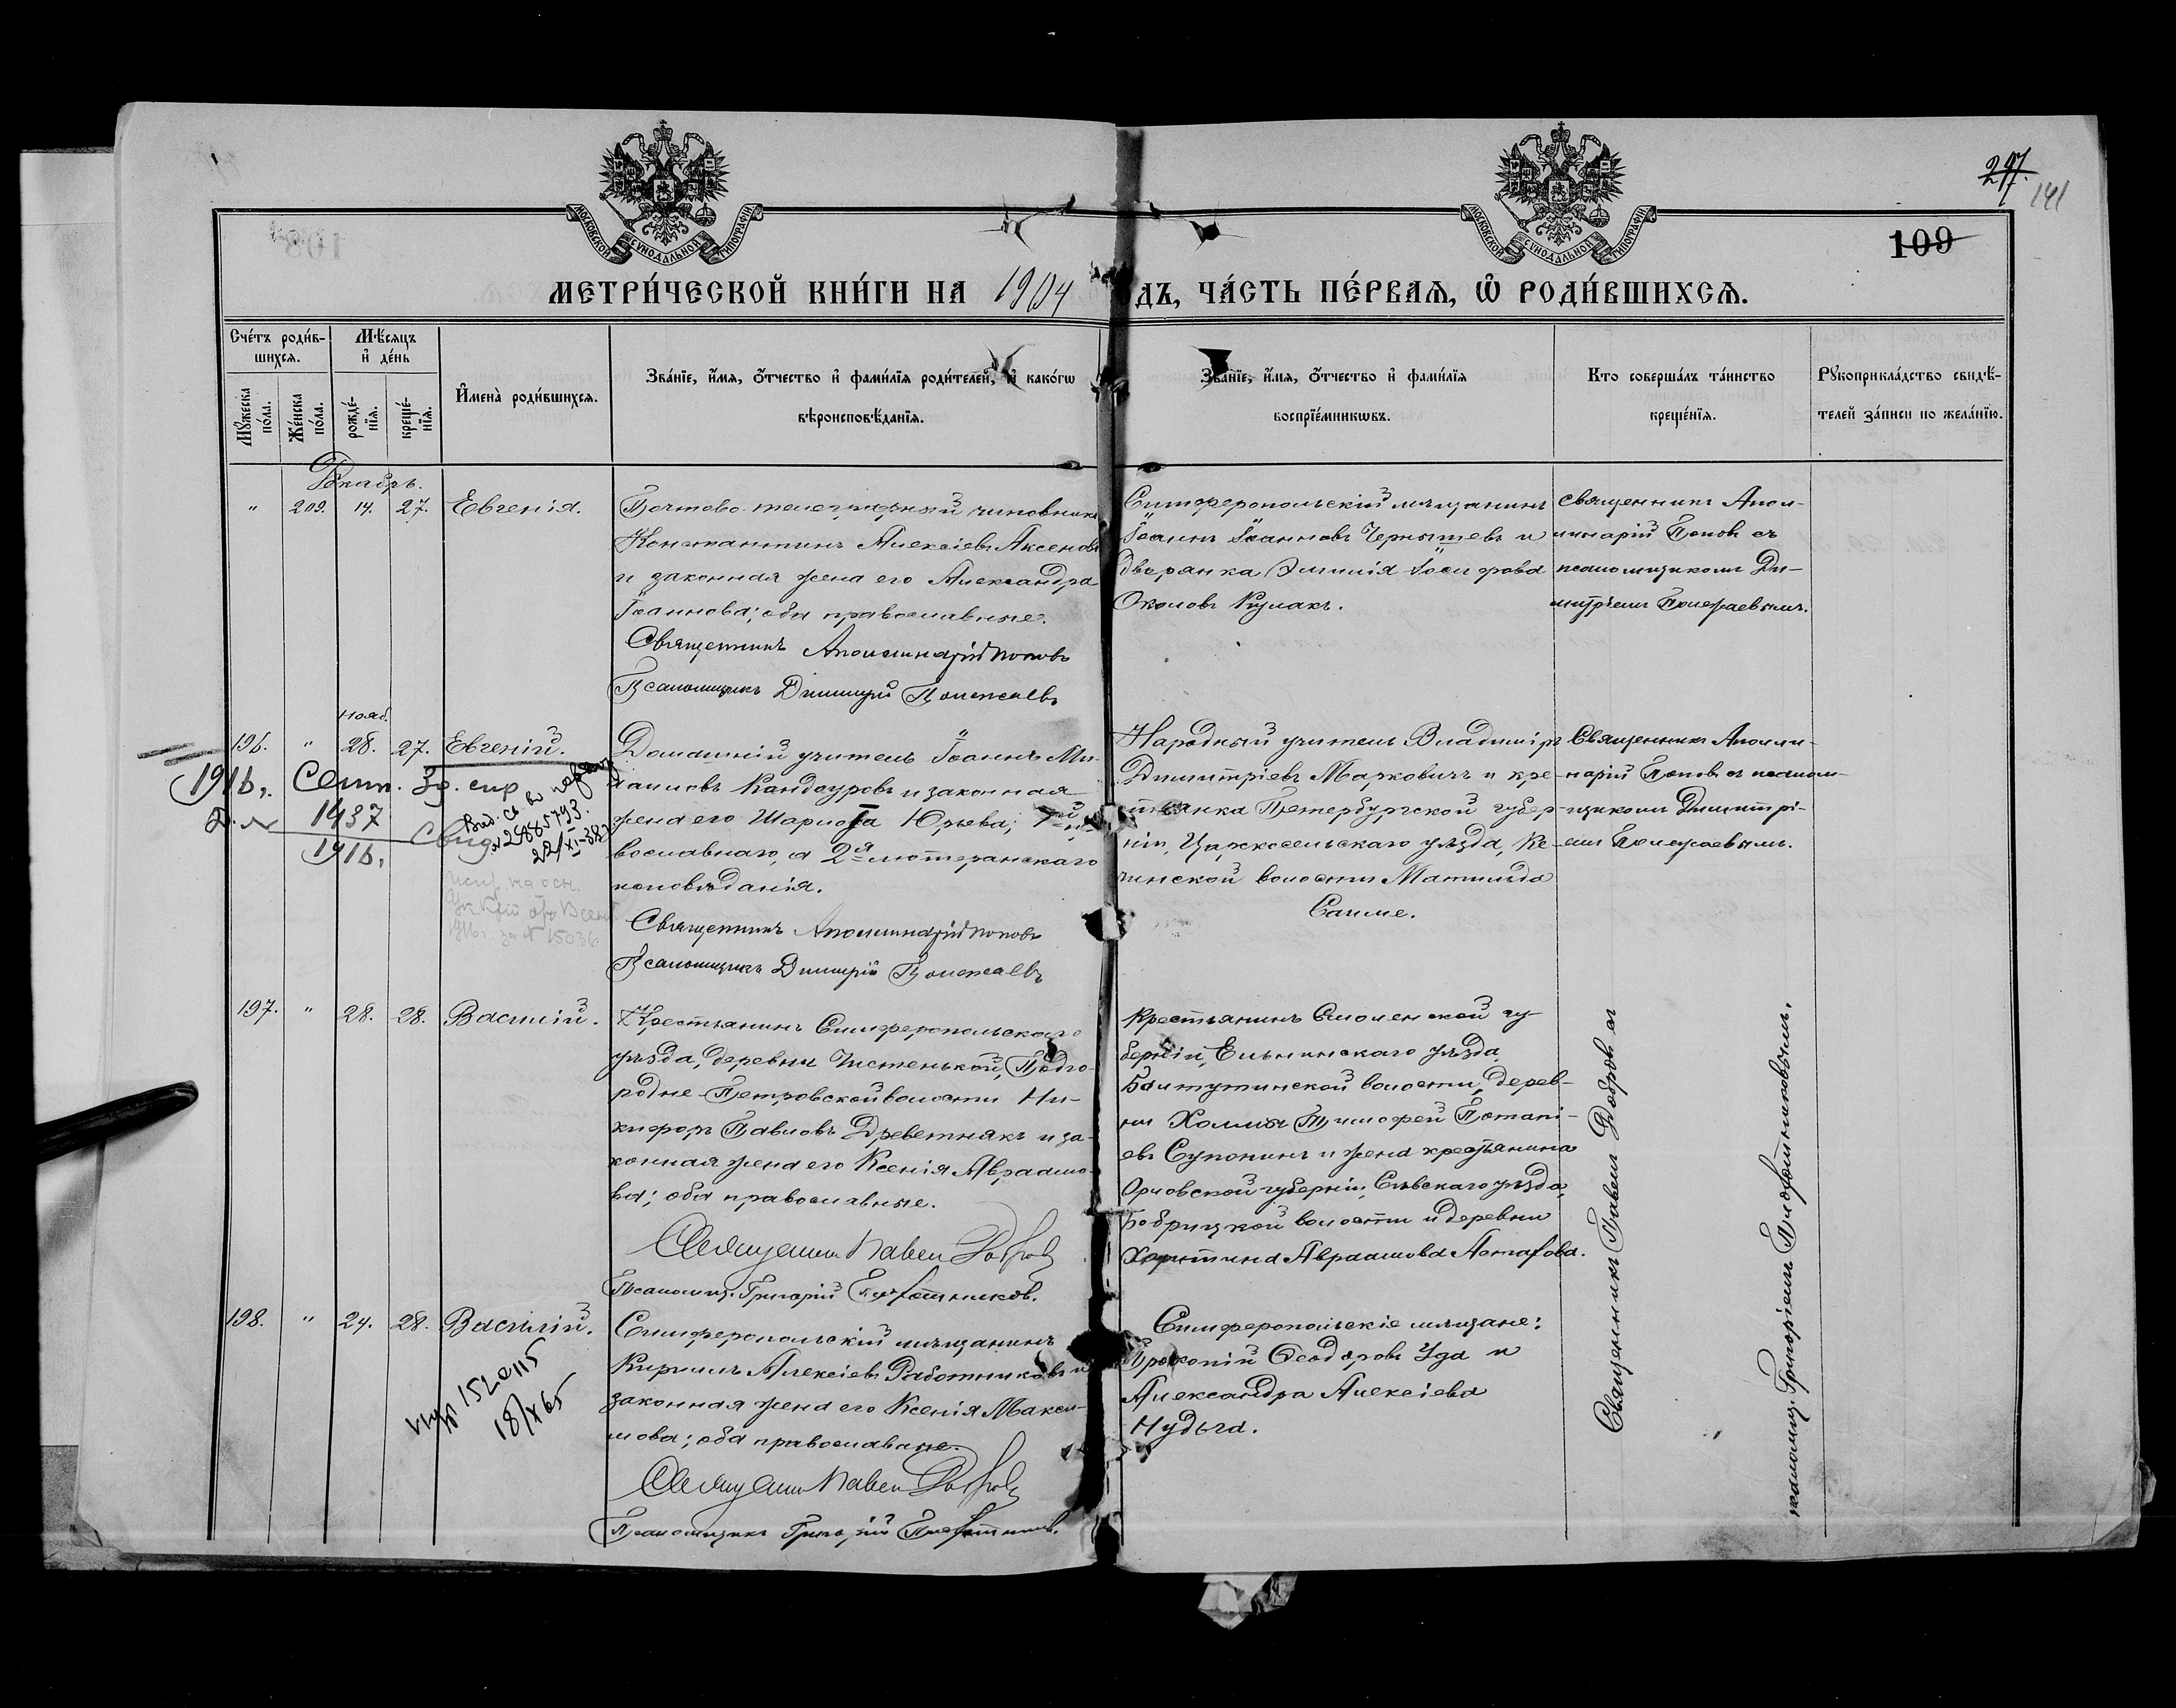 МОСКОВСКОЙ СѴНОДАЛЬНОЙ ТИПОГРАФІИ
МОСКОВСКОЙ СѴНОДАЛЬНОЙ ТИПОГРАФІИ
297.
141
109
МЕТРИ́ЧЕСКОЙ КНИ́ГИ НА 1904
ДЪ, ЧА́СТЬ ПЕ́РВАЯ, Ѡ РОДИ́ВШИХСѦ.
Сче́тъ роди́в-
шихсѧ.
Мꙋ́жеска по́ла.
Же́нска по́ла.
Мѣ́сѧцъ
и҆ де́нь
рожде́-
нїѧ.
креще́-
нїѧ.
И҆мена̀ роди́вшихсѧ.
Зва́нїе, и҆́мѧ, ѻ҆́тчество и҆ фами́лїѧ роди́телей, и҆ како́гѡ
вѣроисповѣ́данїѧ.
Зва́нїе, и҆́мѧ, ѻ҆́тчество и҆ фами́лїѧ
воспрїе́мникѡвъ.
Кто соверша́лъ та́инство
креще́нїѧ.
Рꙋкоприкла́дство свидѣ́-
телей за́писи по жела́нїю.
Декабрь.
" 209. 14. 27. Евгенія.
Почтово-телеграфный чиновникъ
Константинъ Алексіевъ Аксеновъ
и законная жена его Александра
Іоаннова; оба православные.
Священникъ Аполлинарій Поповъ
Псаломщикъ Димитрій Полежаевъ
Симферопольскій мѣщанинъ
Іоаннъ Іоанновъ Чернышевъ и
дворянка Эмилія Іосифова
Околовъ Кулакъ.
Священникъ Апол-
линарій Поповъ съ
псаломщикомъ Ди-
митріемъ Полежаевымъ.
нояб.
196. " 28. 27. Евгеній.
Домашній учитель Іоаннъ Ми-
хаиловъ Кандауровъ и законная
жена его Шарлота Юрьева;
вославнаго, а 2я лютеранскаго
исповѣданія.
Священникъ Аполлинарій Поповъ
Псаломщикъ Димитрій Полежаевъ
1916. Сент. Зд. спр
1937
1916.
Свид.
Выд. св во
№ 2885793.
22/XI-38
Народный учитель Владиміръ
Димитріевъ Марковичъ и кре-
стьянка Петербургской губер-
ніи, Царскосельскаго уѣзда,
чинской волости Матильда
Саиме.
Священникъ Аполли-
нарій Поповъ съ псалом-
щикомъ Димитрі-
емъ Полежаевымъ.
197. " 28. 28. Василій.
Крестьянинъ Симферопольскаго
уѣзда, деревни Чистенькой, Подго-
родне-Петровской волости Ни-
кифоръ Павловъ Древетнякъ и за-
конная жена его Ксенія Авраамо-
ва; оба православные.
Священникъ Павелъ Добровъ
Псаломщ. Григорій
Крестьянинъ Смоленской гу-
берніи, Ельнинскаго уѣзда
Болтутинской волости, дерев-
ни Холмы Тимофей Потапі-
евъ Супонинъ и жена крестьянина
Орловской губерніи, Сѣвскаго уѣзда,
Бобрицкой волости и деревни
Харитина Авраамова Астафова.
Священникъ Павелъ Добровъ съ
псаломщ. Григоріемъ
198. " 24. 28. Василій.
Симферопольскій мѣщанинъ
Кириллъ Алексіевъ Работниковъ и
законная жена его Ксенія Макси-
мова; оба православные.
Священникъ Павелъ Добровъ
Псаломщикъ Григорій
18/X 65
Симферопольскіе мѣщане:
Прокопій Ѳеодоровъ Уда и
Александра Алексіева
Нудьга.